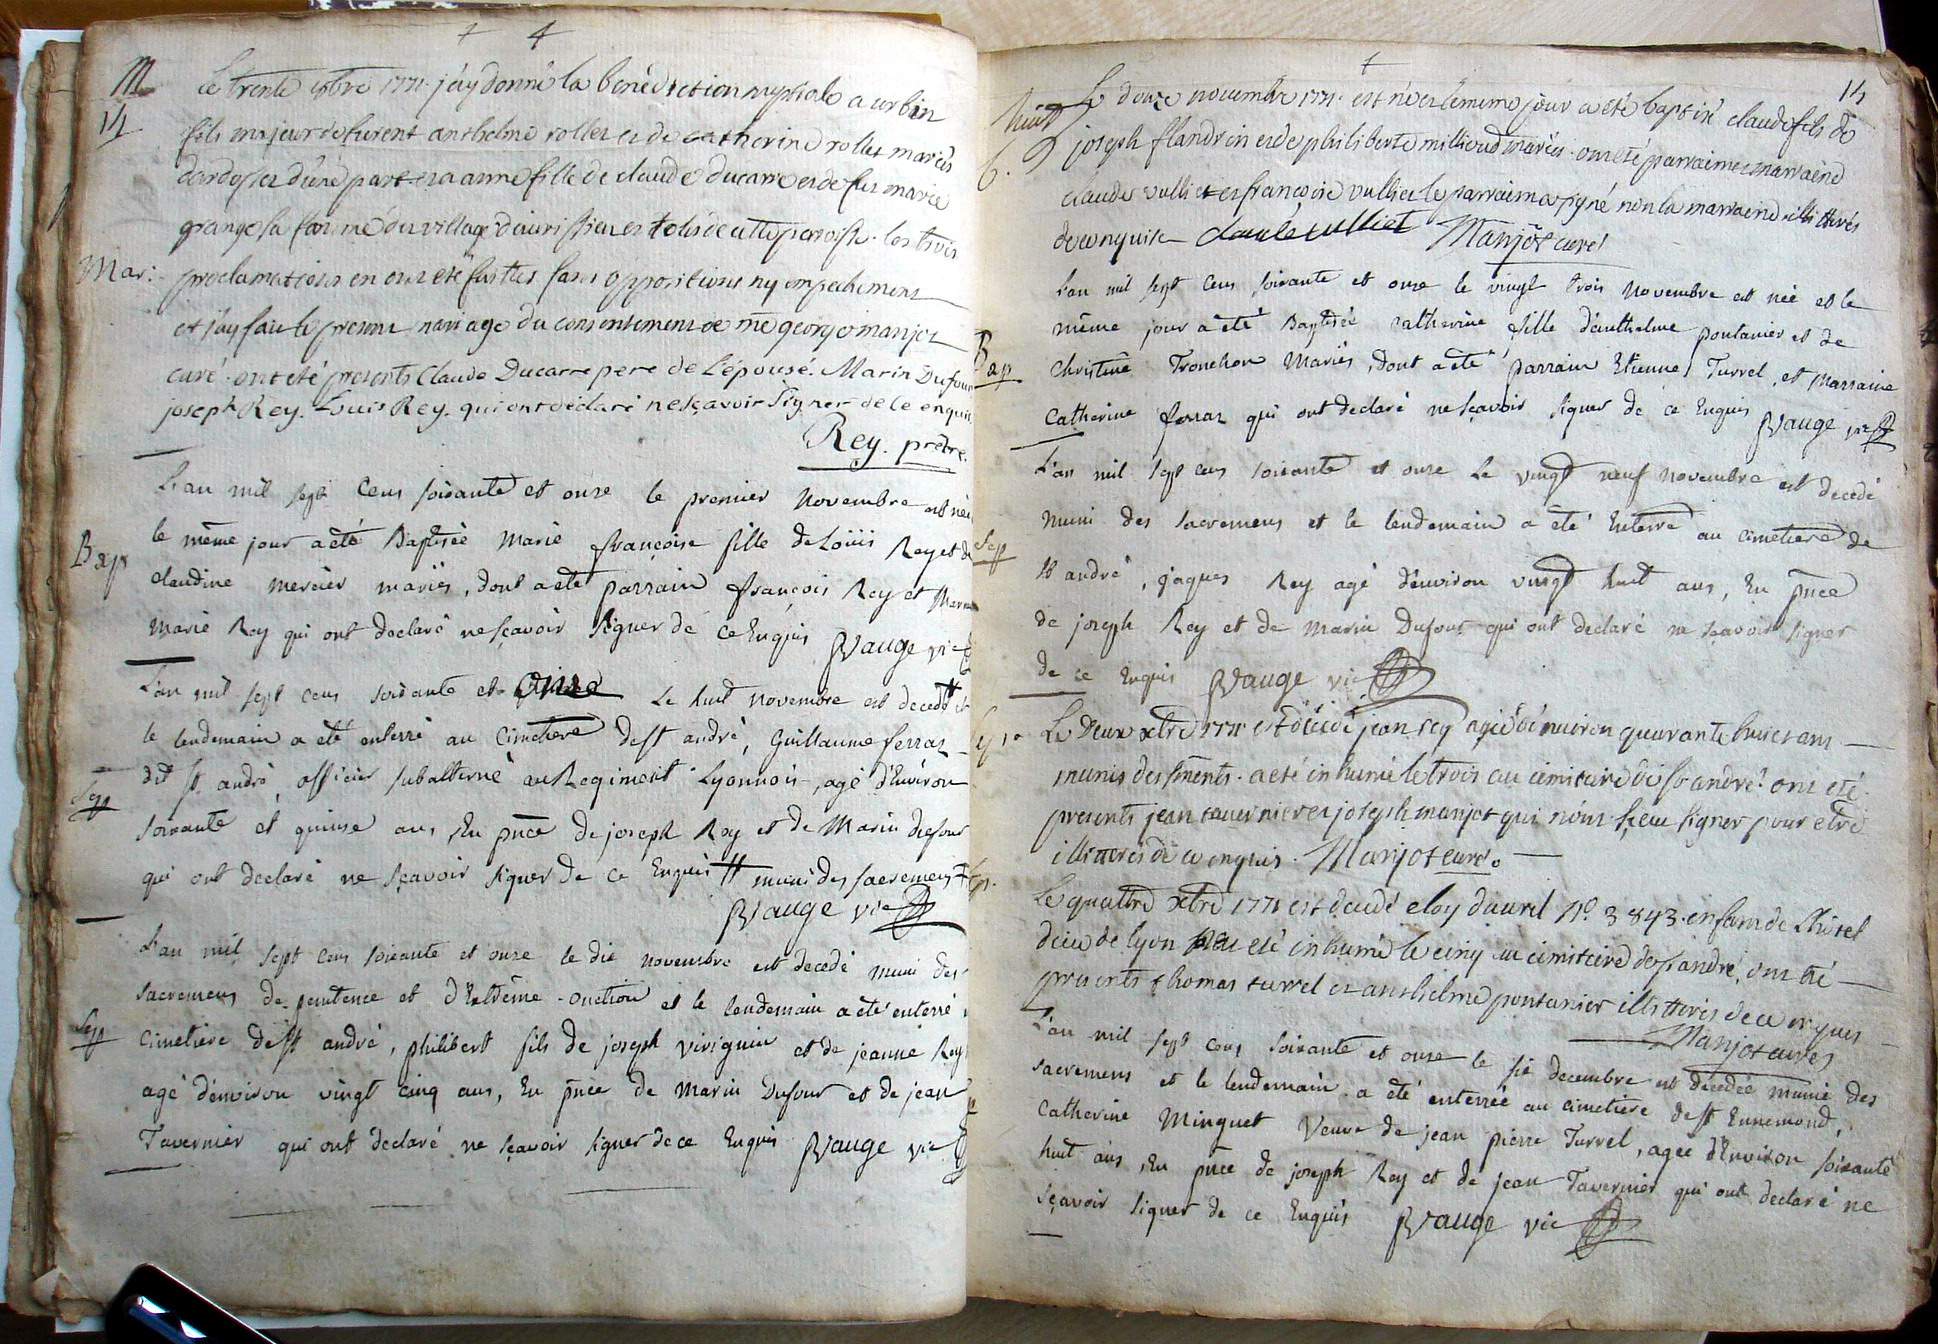 4
M
14
Le trente 8bre 1771. j'ay donné la benediction nuptiale a urbin
fils majeur de furent anthelme rollet et de catherine rollet mariés
d'une part et a anne fille de claude ducarre et de fut marie
grange sa famme du village d'aurissieu et tolis de cette paroisse. les trois
Mar:
proclamations en ont eté faittes sans oppositions ny empechement
et j'ay fait le present mariage du consentement de me george manjot
curé. ont eté presents Claude Ducarre pere de L'épouse. Marin Dufour
joseph Rey. Louis Rey. qui ont déclaré ne sçavoir signer de ce enquis.
Rey. prêtre.
L'an mil sept cens soixante et onze le premier Novembre est née
le même jour a eté Baptisée Marie françoise fille de Loüis Rey et de
Bap
claudine mercier mariés, dont a eté parrain françois Rey et Marr
Marie Rey qui ont declaré ne sçavoir signer de ce Enquis Vauge vic
L'an mil sept cens soixante et onze Le huit novembre est decedé et
le lendemain a eté enterré au cimetiere de st andré, Guillaume ferraz
dit st. andré officier subalterne au Regiment Lyonnois, agé d'Environ
Sep
soixante et quinze ans, En pnce de joseph Rey et de Marin dufour
qui ont declaré ne sçavoir signer de ce Enquis # muni des sacremens #
Vauge vic
L'an mil sept cens soixante et onze le dix novembre est decedé muni des
sacremens de penitence et d'Extrême-onction et le lendemain a eté enterré
Sep
cimetiere de st andré, philibert fils de joseph virignin et de jeanne Rey
agé d'environ vingt cinq ans, En pnce de Marin Dufour et de jean
Tavernier qui ont declaré ne sçavoir signer de ce Enquis Vauge vic
14
Le douze novembre 1771. est né et le meme jour a eté baptisé claude fils de
joseph flandrin et de philiberte millioud mariés. ont eté parrain et marraine
6.
claude vulliet et françoise vulliet le parrain a signé non la marraine illitterés
de ce enquise claude vulliet Manjot curé
L'an mil sept cens soixante et onze le vingt trois Novembre est née et le
même jour a été Baptisée catherine fille d'anthelme pontanier et de
Bap
christine Tronchon Mariés, dont a eté parrain Etienne Turrel, et Marraine
catherine ferraz qui ont declaré ne sçavoir signer de ce Enquis Vauge vic
L'an mil sept cens soixante et onze Le vingt neuf novembre est decedé
muni des sacremens et le lendemain a eté Enterré au cimetiere de
Sep
st andré, jaques Rey agé d'environ vingt huit ans, En pnce
de joseph Rey et de Marin Dufour qui ont declaré ne sçavoir signer
de ce Enquis Vauge vic
Sep.
Le Deux xbre 1771 est décédé jean rey agé d'environ quarante huict ans
munis des sments. a eté inhumé le trois au cimitaire de st andré. ont eté
presents jean tavernier et joseph manjot qui n'ont sceu signer pour etre
illitterés de ce enquis. Manjot curé.
Sep.
Le quattre xbre 1771 est decedé eloy d'avril No 3843. enfant de L'hotel
dieu de lyon eté inhumé le cinq au cimitaire de st andré, ont eté
presents thomas turrel et anthelme pontanier illitterés de ce enquis
Manjot curé
L'an mil sept cens soixante et onze le six decembre est decedée munie des
sacremens et le lendemain a été enterrée au cimetiere de st Ennemond,
Catherine Minguet Veuve de jean pierre Turrel, agée d'Environ soixante
huit ans, En pnce de joseph Rey et de jean Tavernier qui ont declaré ne
sçavoir signer de ce Enquis Vauge vic